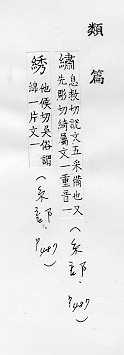 類篇
繡
息救切說文五采備也又
先彫切綺屬文一重音一
(糸部. P487)
綉
他候切吳俗謂
一片文一
(糸部. P487)